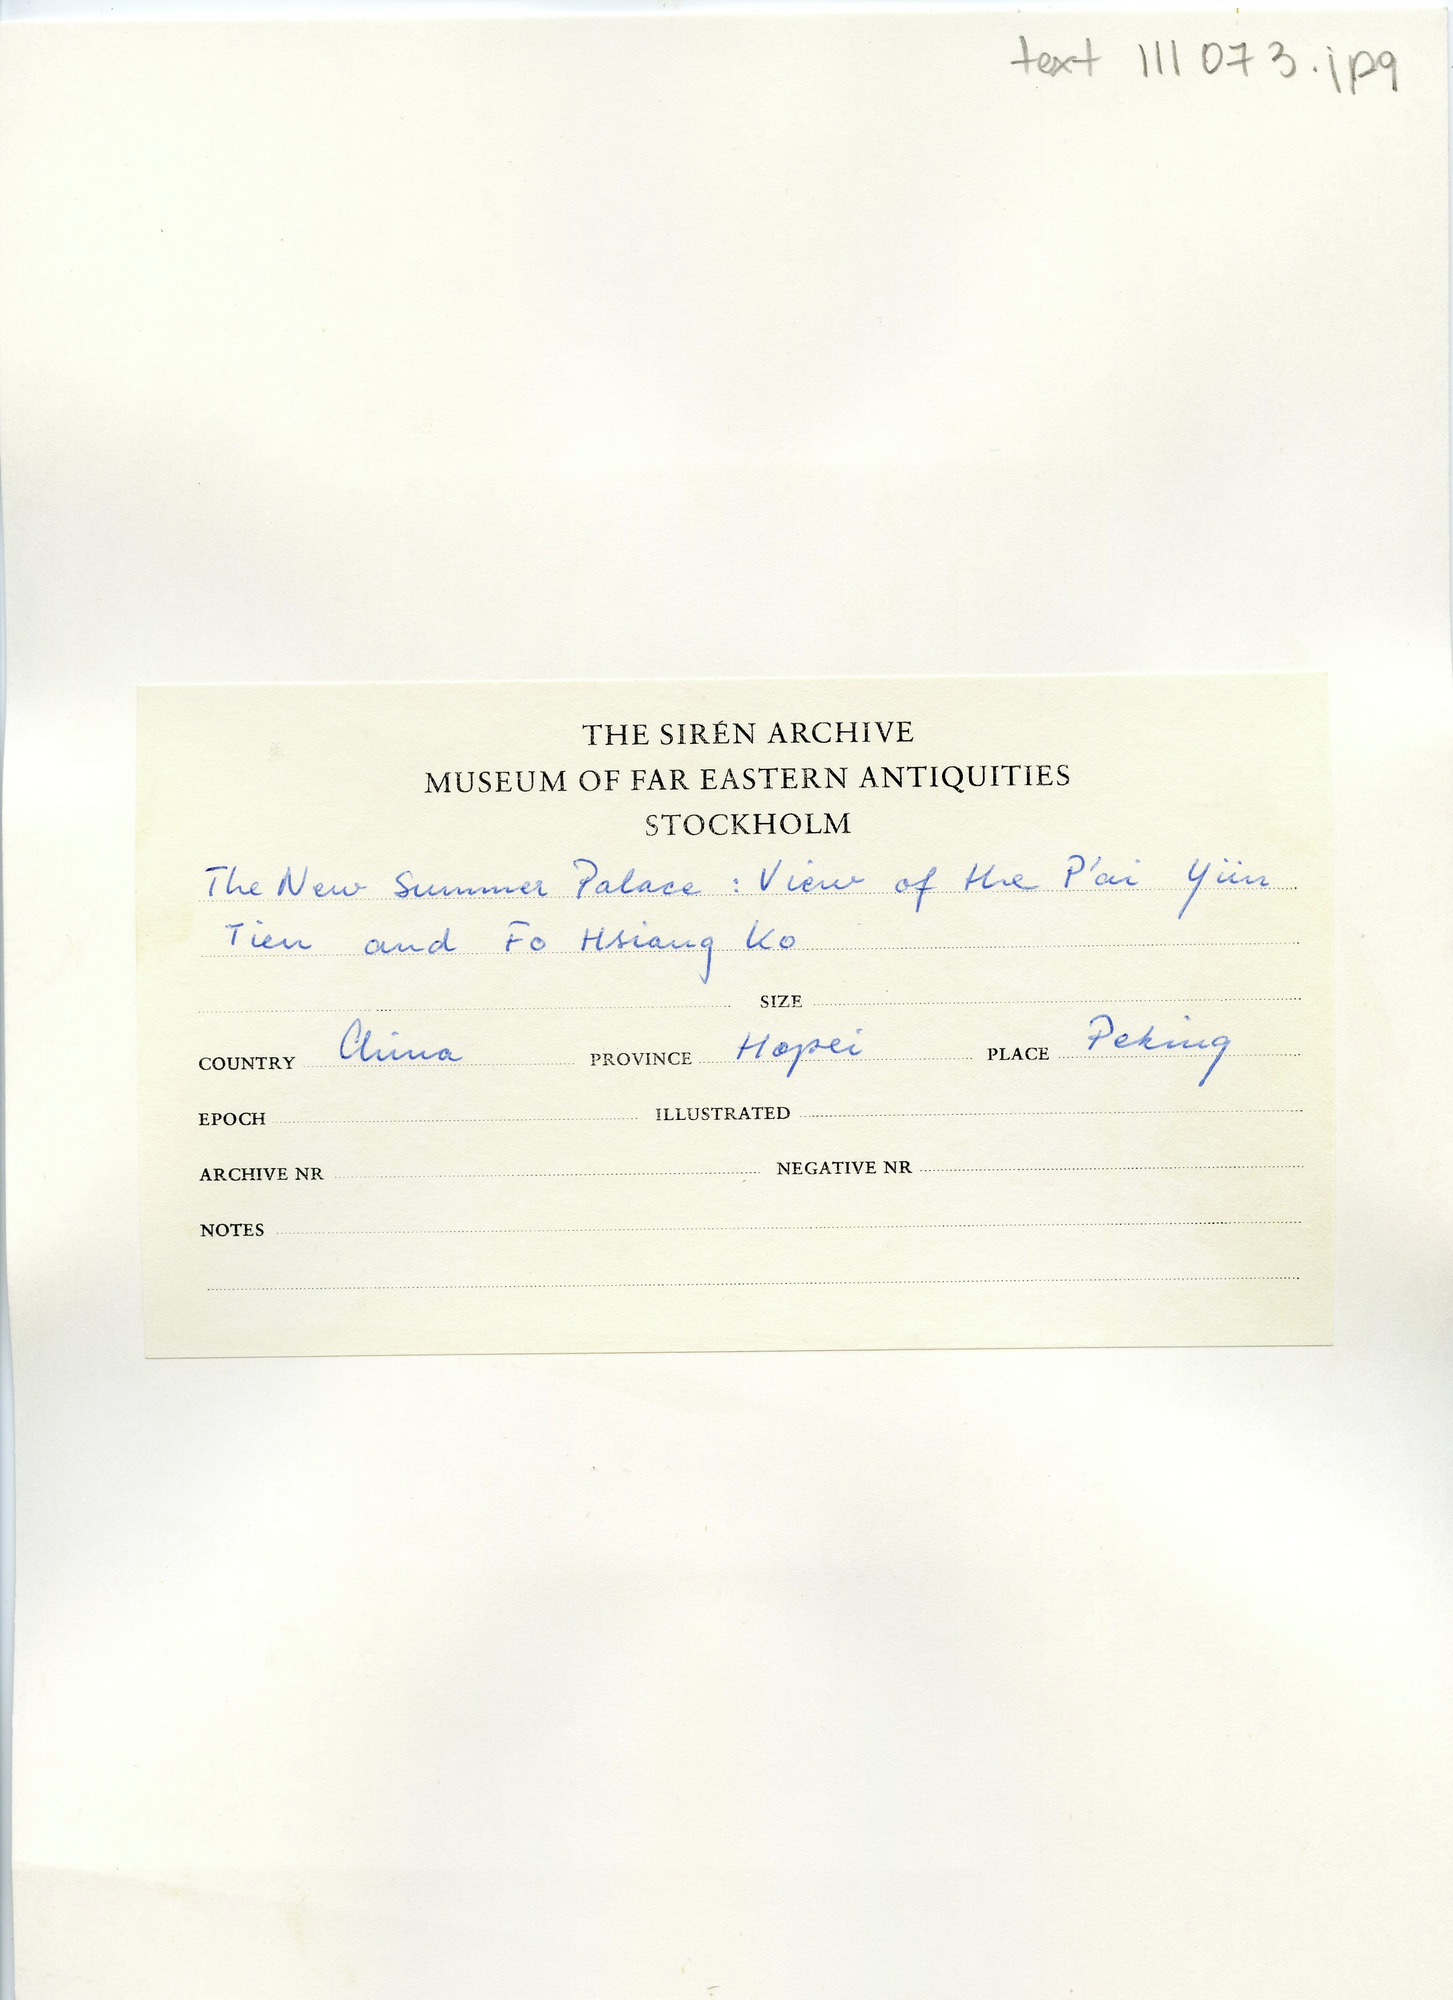 text 111 073.jpg
THE SIRÉN ARCHIVE
MUSEUM OF FAR EASTERN ANTIQUITIES
STOCKHOLM
The New Summer Palace : View of the P'ai Yün
Tien and Fo Hsiang Ko
SIZE
COUNTRY China PROVINCE Hopei PLACE Peking
EPOCH ILLUSTRATED
ARCHIVE NR NEGATIVE NR
NOTES